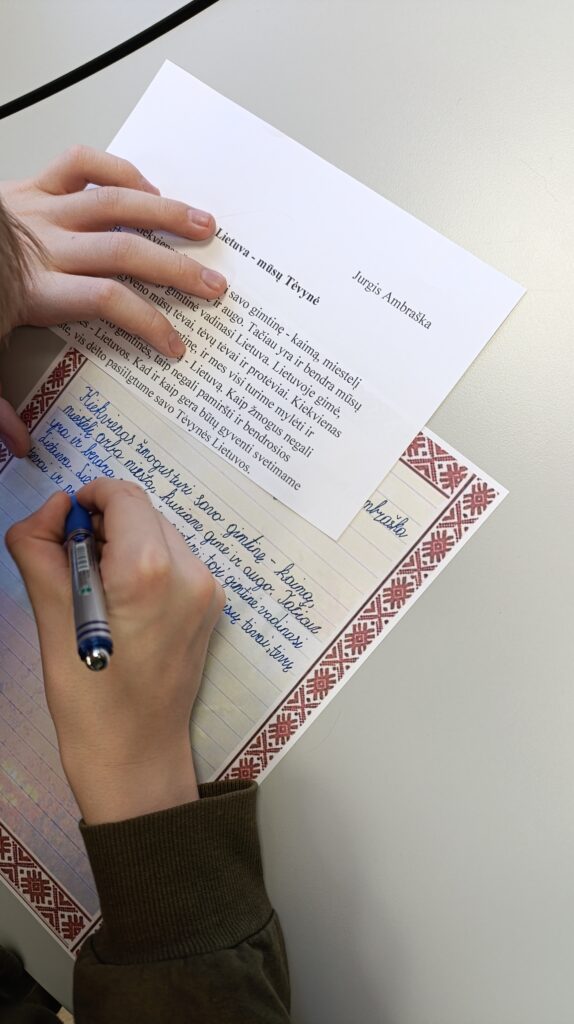 Jurgis Ambraška
Lietuva - mūsų Tėvynė
Kiekvienas savo gimtinę - kaimą, miestelį
ir augo. Tačiau yra ir bendra mūsų
gimtinė vadinasi Lietuva. Lietuvoje gimė,
gyveno mūsų tėvai, tėvų tėvai ir proteviai. Kiekvienas
ir mes visi turime mylėti ir
- Lietuvą. Kaip žmogus negali
gimtinės, taip negali pamiršti ir bendrosios
- Lietuvos. Kad ir kaip gera būtų gyventi svetimame
vis dėlto pasiilgtume savo Tėvynės Lietuvos.
mbraška
Kiekvienas žmogus turi savo gimtinę - kaimą,
miestelį arba miestą, kuriame gimė ir augo. Tačiau
yra ir bendra toji gimtinė vadinasi
tėvai, tėvų
tėvai ir